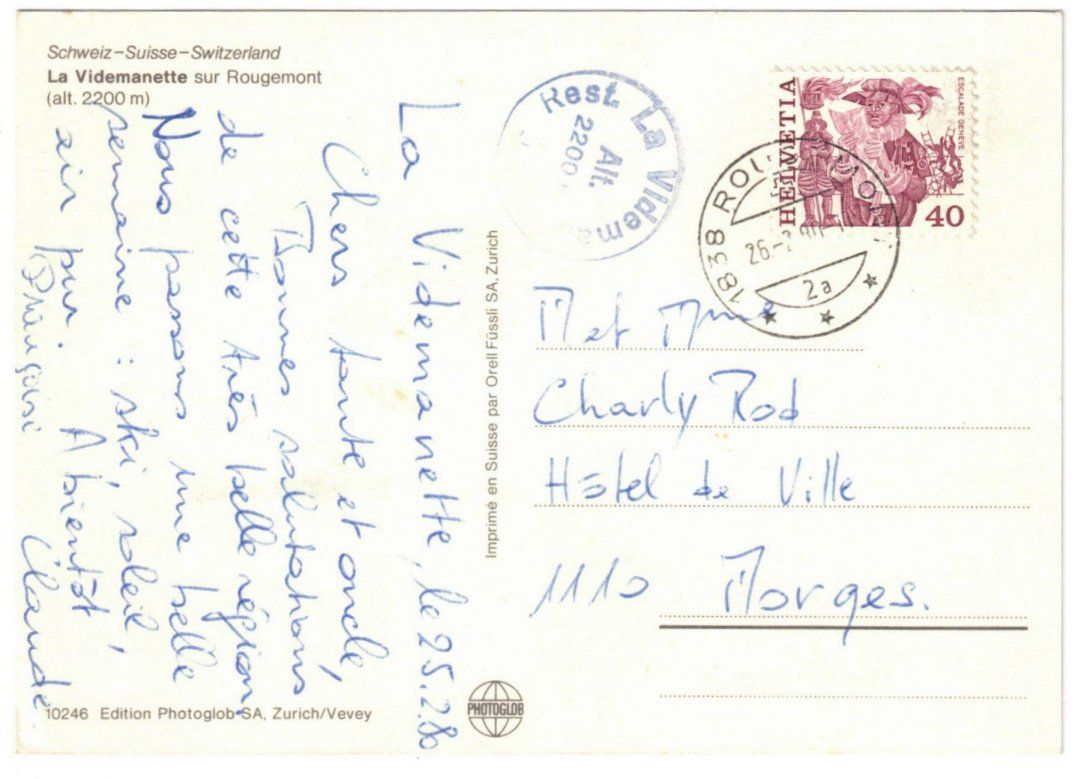 Schweiz–Suisse–Switzerland
La Videmanette sur Rougemont
(alt. 2200 m)
La Videmanette, le 25.2.80
Chers tante et oncle,
Bonnes salutations
de cette très belle région.
Nous passons une belle
semaine : ski, soleil,
air pur. A bientôt
Françoise Claude
10246 Edition Photoglob SA, Zurich/Vevey
Imprimé en Suisse par Orell Füssli SA, Zurich
PHOTOGLOB
Rest. La Videma
Alt.
2200
HELVETIA
ESCALADE GENÈVE
40
1838 ROU
26.-2
2a
M et Mme
Charly Rod
Hôtel de Ville
1110 Morges.